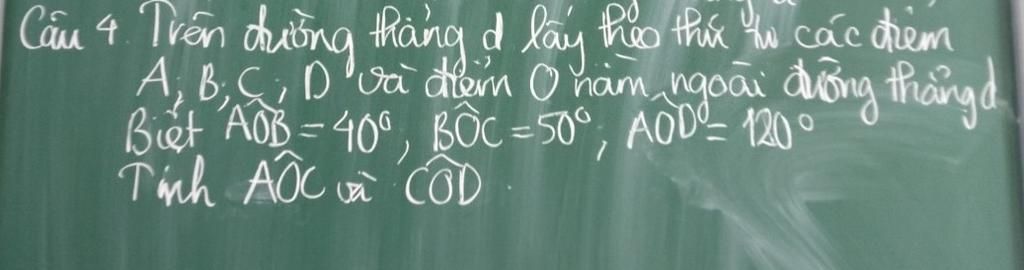 Câu 4. Trên đường thẳng d lấy theo thứ tự các điểm
A, B, C, D và điểm O nằm ngoài đường thẳng d
Biết AÔB = 40°, BÔC = 50°, AÔD = 120°
Tính AÔC và CÔD.